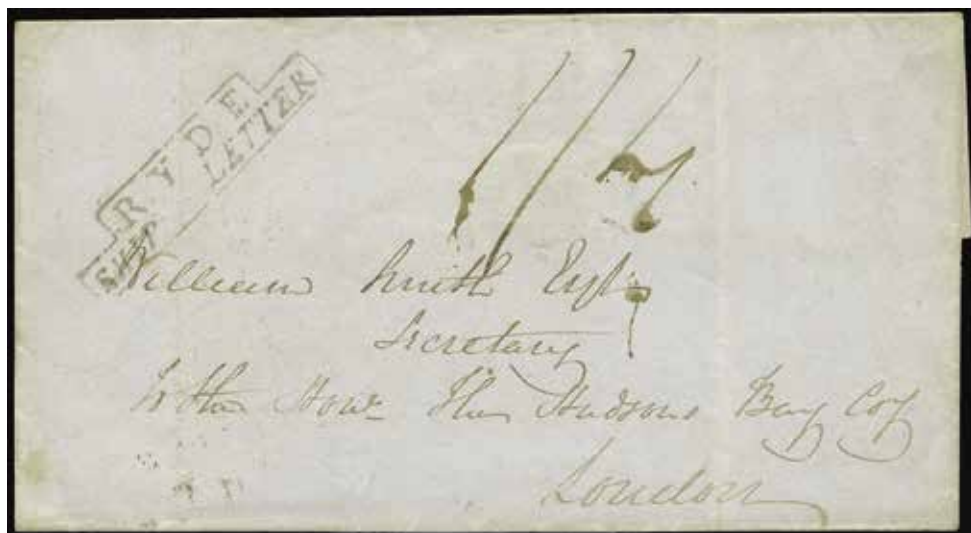 RYDE
SHIP LETTER
1/4
William Smith Esqr
Secretary
to the Honr The Hudsons Bay Coy
London